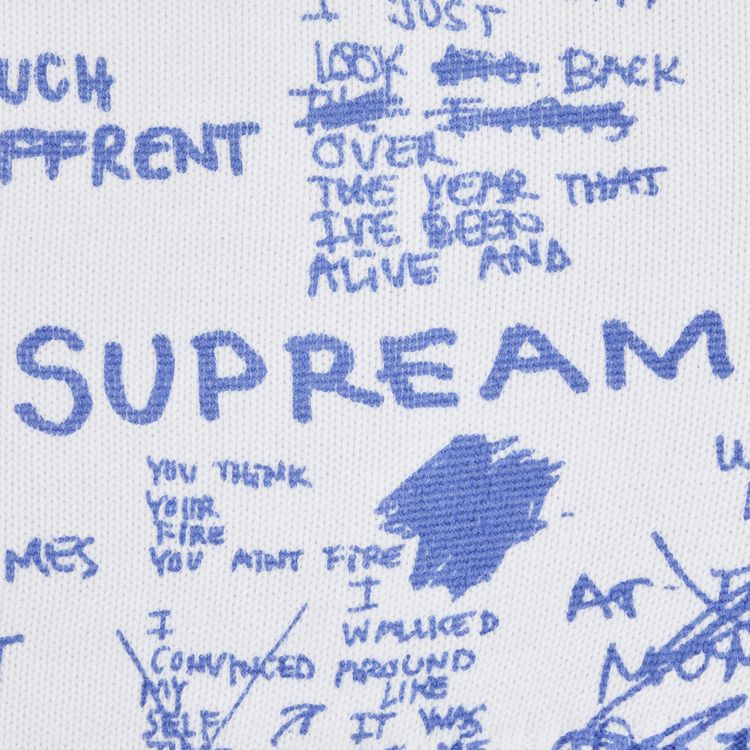 I JUST
LOOK BACK
OVER
THE YEAR THAT
I'VE BEEN
ALIVE AND
UCH
FFRENT
SUPREAM
YOU THINK
YOUR
FIRE
YOU AINT FIRE
MES
I
CONVINCED
MY
SELF
I
WALKED
AROUND
LIKE
IT WAS
AT